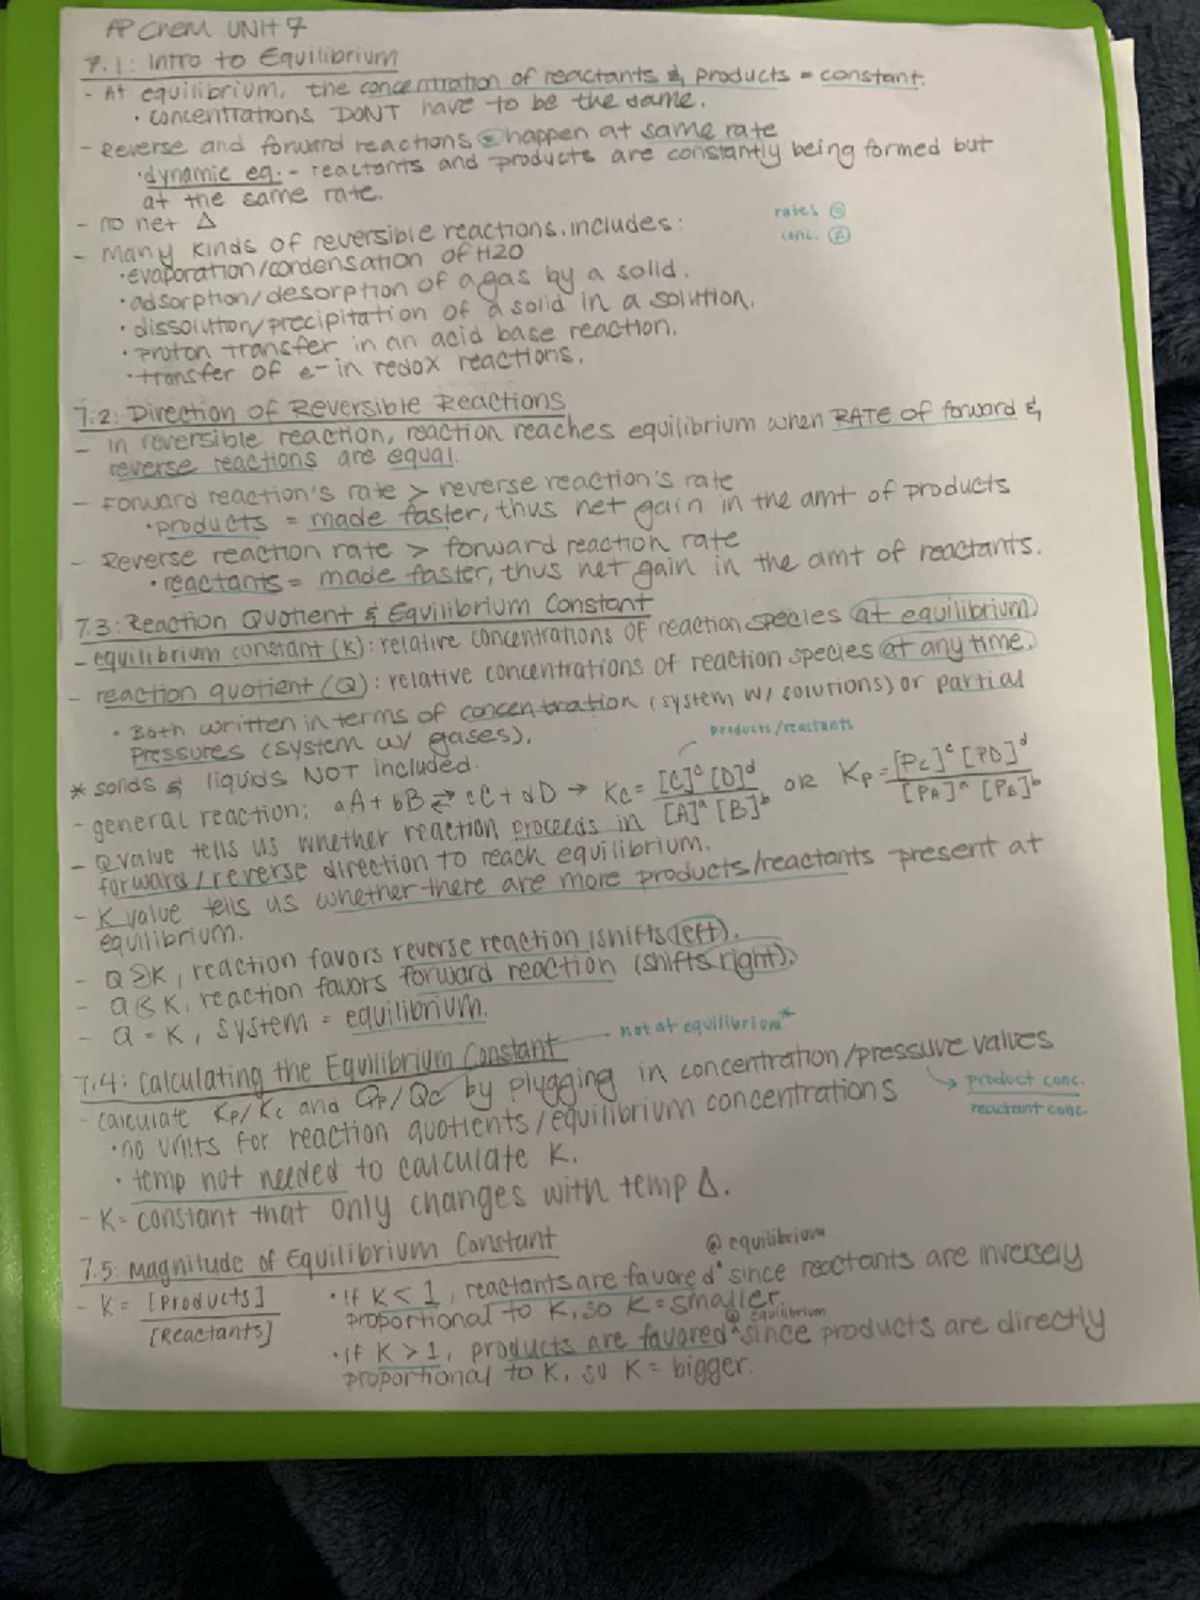 AP Chem UNIT 7
7.1: Intro to Equilibrium
- At equilibrium, the concentration of reactants & products = constant.
· concentrations DONT have to be the same.
- Reverse and forward reactions happen at same rate
· dynamic eq. - reactants and products are constantly being formed but
at the same rate.
- no net Δ
rates =
conc. ≠
- Many kinds of reversible reactions. includes:
· evaporation/condensation of H2O
· adsorption/desorption of a gas by a solid.
· dissolution/precipitation of a solid in a solution.
· proton transfer in an acid base reaction.
· transfer of e- in redox reactions.
7.2: Direction of Reversible Reactions
- in reversible reaction, reaction reaches equilibrium when RATE of forward &
reverse reactions are equal.
- Forward reaction's rate > reverse reaction's rate
· products = made faster, thus net gain in the amt of products
- Reverse reaction rate > forward reaction rate
· reactants = made faster, thus net gain in the amt of reactants.
7.3: Reaction Quotient & Equilibrium Constant
- equilibrium constant (K): relative concentrations of reaction species at equilibrium
- reaction quotient (Q): relative concentrations of reaction species at any time.
· Both written in terms of concentration (system w/ solutions) or partial
pressures (system w/ gases).
products/reactants
* solids & liquids NOT included.
- general reaction: aA + bB ⇌ cC + dD → Kc = [C]^c [D]^d / [A]^a [B]^b OR Kp = [PC]^c [PD]^d / [PA]^a [PB]^b
- Q value tells us whether reaction proceeds in
forward/reverse direction to reach equilibrium.
- K value tells us whether there are more products/reactants present at
equilibrium.
- Q > K, reaction favors reverse reaction (shifts left).
- Q < K, reaction favors forward reaction (shifts right).
- Q = K, system = equilibrium.
7.4: Calculating the Equilibrium Constant
not at equilibrium*
- calculate Kp/Kc and Qp/Qc by plugging in concentration/pressure values
product conc.
reactant conc.
· no units for reaction quotients/equilibrium concentrations
· temp not needed to calculate K.
- K = constant that only changes with temp Δ.
7.5: Magnitude of Equilibrium Constant
- K = [Products] / [Reactants]
@ equilibrium
· if K < 1, reactants are favored ^ since reactants are inversely
proportional to K, so K = smaller.
@ equilibrium
· if K > 1, products are favored ^ since products are directly
proportional to K, so K = bigger.